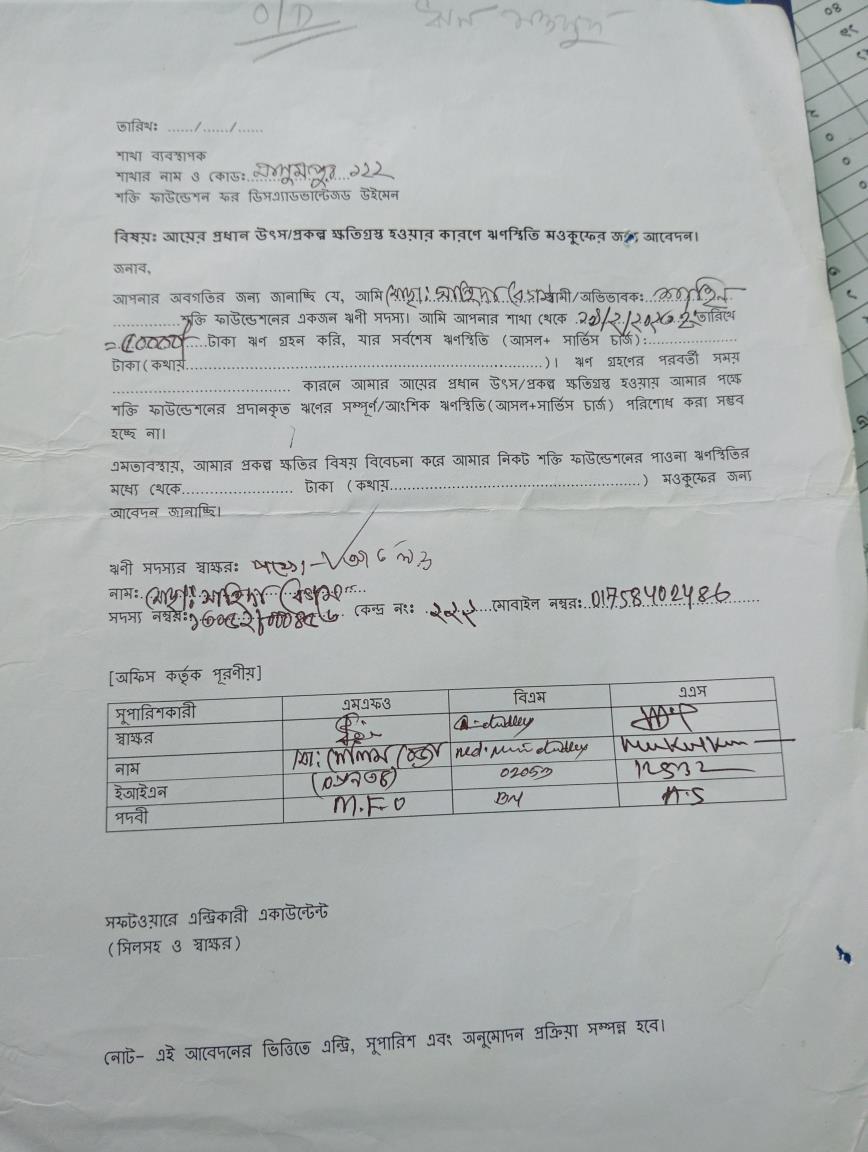 O/D ঋন মওকুফ
তারিখঃ ....../....../......
শাখা ব্যবস্থাপক
শাখার নাম ও কোডঃ ... ১২২
শক্তি ফাউন্ডেশন ফর ডিসএ্যাডভান্টেজড উইমেন
বিষয়ঃ আয়ের প্রধান উৎস/প্রকল্প ক্ষতিগ্রস্থ হওয়ার কারণে ঋণস্থিতি মওকুফের জন্য আবেদন।
জনাব,
আপনার অবগতির জন্য জানাচ্ছি যে, আমি মোছাঃ সাহিদা বেগম স্বামী/অভিভাবকঃ
..................শক্তি ফাউন্ডেশনের একজন ঋনী সদস্য। আমি আপনার শাখা থেকে তারিখে
= ৫০০০০/ টাকা ঋণ গ্রহন করি, যার সর্বশেষ ঋণস্থিতি (আসল+ সার্ভিস চার্জ)ঃ..................
টাকা(কথায়..................................................................)। ঋণ গ্রহণের পরবর্তী সময়
.................................. কারনে আমার আয়ের প্রধান উৎস/প্রকল্প ক্ষতিগ্রস্থ হওয়ায় আমার পক্ষে
শক্তি ফাউন্ডেশনের প্রদানকৃত ঋণের সম্পূর্ণ/আংশিক ঋণস্থিতি(আসল+সার্ভিস চার্জ) পরিশোধ করা সম্ভব
হচ্ছে না।
এমতাবস্থায়, আমার প্রকল্প ক্ষতির বিষয় বিবেচনা করে আমার নিকট শক্তি ফাউন্ডেশনের পাওনা ঋণস্থিতির
মধ্যে থেকে...................... টাকা (কথায়..................................................) মওকুফের জন্য
আবেদন জানাচ্ছি।
ঋনী সদস্যর স্বাক্ষরঃ
নামঃ মোছাঃ সাহিদা বেগম
সদস্য নম্বরঃ কেন্দ্র নংঃ ২২২ মোবাইল নম্বরঃ 01758402486
[অফিস কর্তৃক পূরনীয়]
সুপারিশকারী এমএফও বিএম এএস
স্বাক্ষর
নাম
ইআইএন 02053 12932
পদবী M.F.O BM A.S
সফটওয়্যারে এন্ট্রিকারী একাউন্টেন্ট
(সিলসহ ও স্বাক্ষর)
নোট- এই আবেদনের ভিত্তিতে এন্ট্রি, সুপারিশ এবং অনুমোদন প্রক্রিয়া সম্পন্ন হবে।